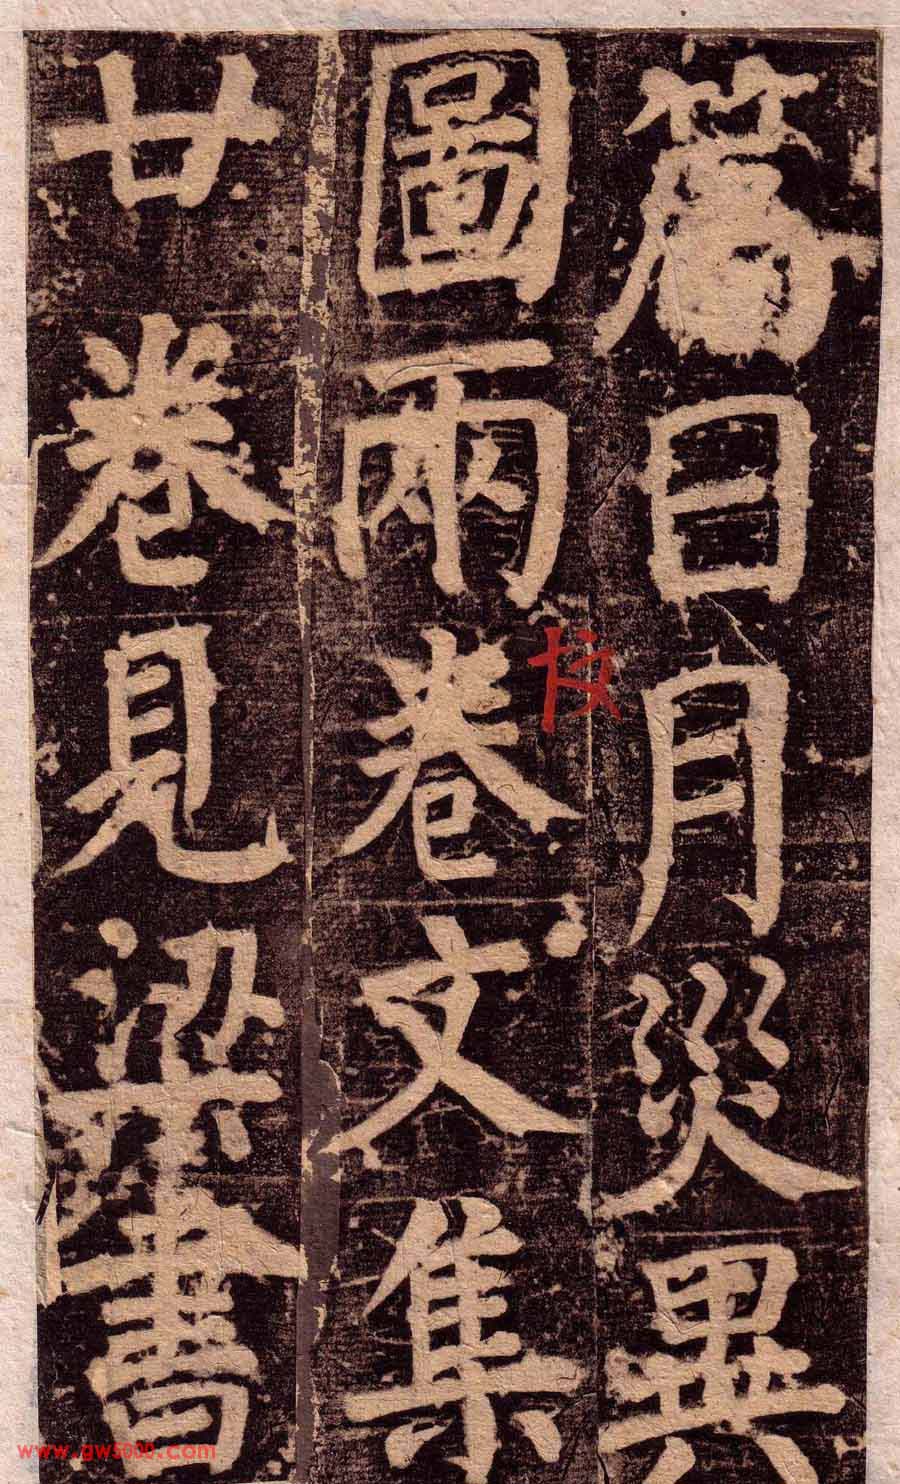 篇日月災異
圖兩卷文集
廿卷見梁書
校
www.gw5000.com